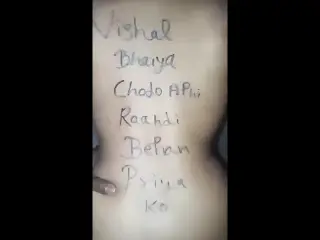 Vishal
Bhaiya
Chodo APni
Raandi
Behan
Priya
Ko